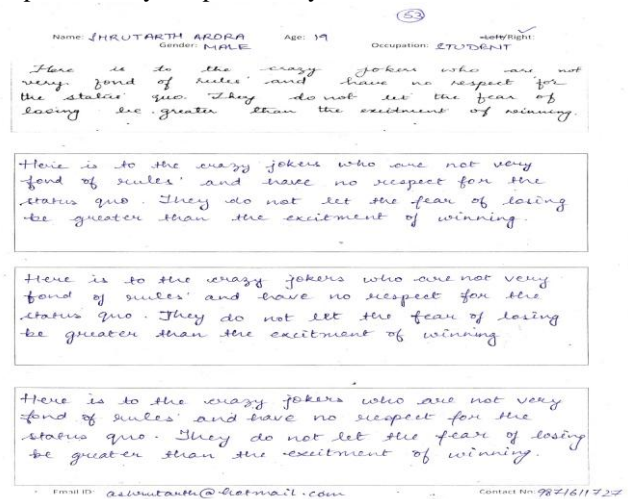 53
Name: SHRUTARTH ARORA Age: 19 Left/Right:
Gender: MALE Occupation: STUDENT
Here is to the crazy jokers who are not
very fond of rules' and have no respect for
the status' quo. They do not let the fear of
losing be greater than the excitment of winning.
Here is to the crazy jokers who are not very
fond of rules' and have no respect for the
status quo. They do not let the fear of losing
be greater than the excitment of winning.
Here is to the crazy jokers who are not very
fond of rules' and have no respect for the
status quo. They do not let the fear of losing
be greater than the excitment of winning
Here is to the crazy jokers who are not very
fond of rules' and have no respect for the
status quo. They do not let the fear of losing
be greater than the excitment of winning.
Email ID: ashrutarth@hotmail.com Contact No: 9871611727